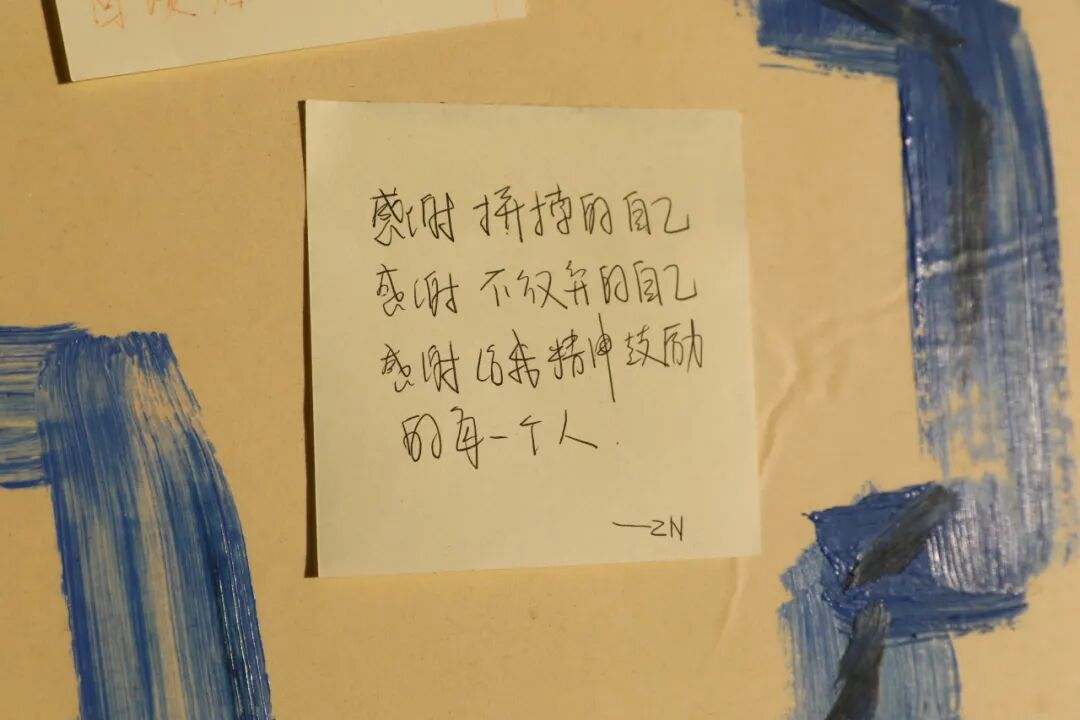 感谢 拼搏的自己
感谢 不放弃的自己
感谢 给我精神鼓励
的每一个人.
—ZN